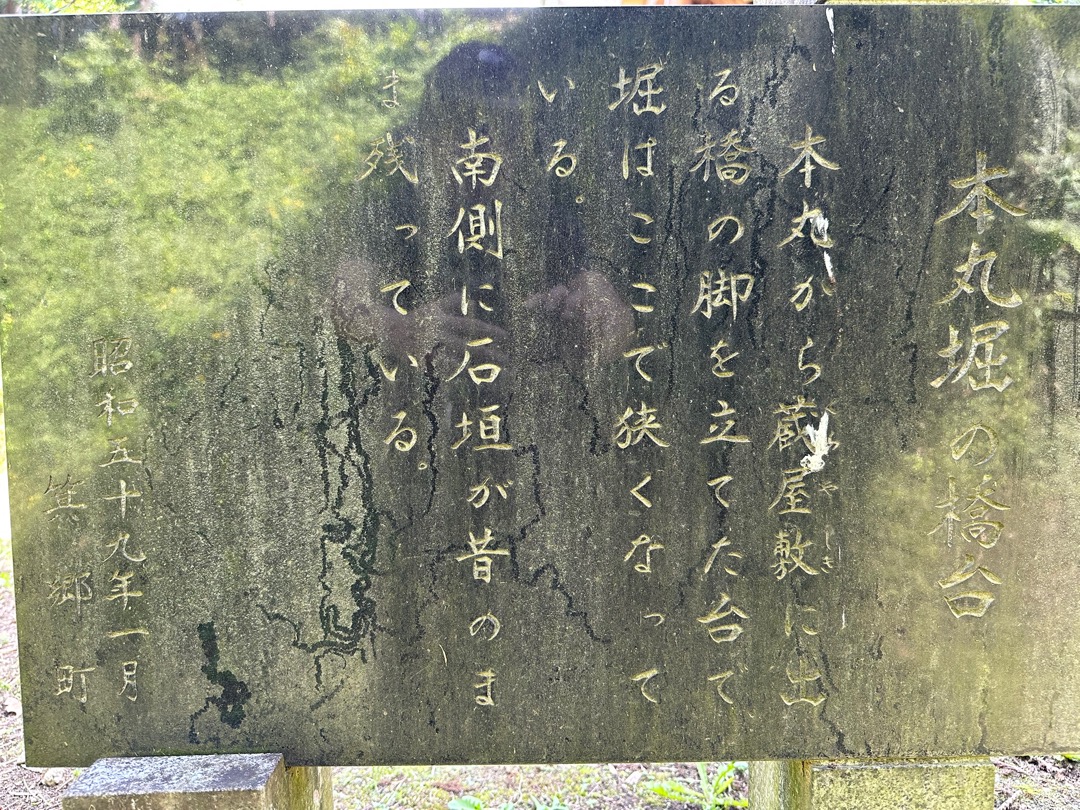 本丸堀の橋台
本丸から蔵屋敷に出
る橋の脚を立てた台で
堀はここで狭くなって
いる。
南側に石垣が昔のま
ま残っている。
昭和五十九年一月
箕郷町